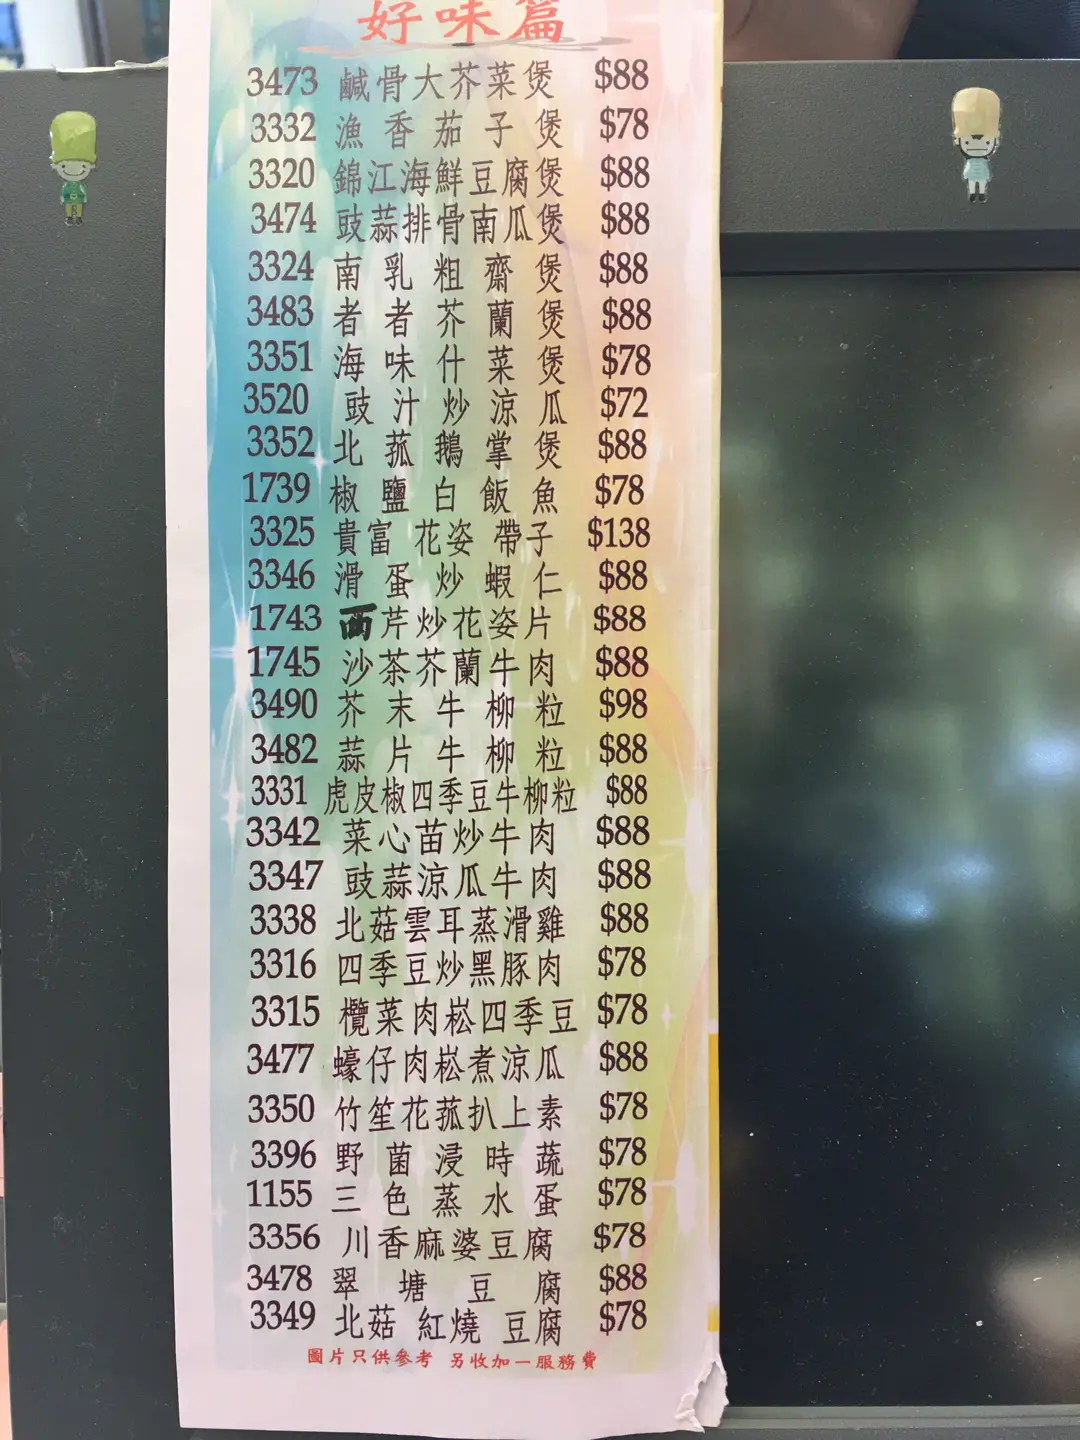 好味篇
3473 鹹骨大芥菜煲 $88
3332 漁香茄子煲 $78
3320 錦江海鮮豆腐煲 $88
3474 豉蒜排骨南瓜煲 $88
3324 南乳粗齋煲 $88
3483 者者芥蘭煲 $88
3351 海味什菜煲 $78
3520 豉汁炒涼瓜 $72
3352 北菰鵝掌煲 $88
1739 椒鹽白飯魚 $78
3325 貴富花姿帶子 $138
3346 滑蛋炒蝦仁 $88
1743 西芹炒花姿片 $88
1745 沙茶芥蘭牛肉 $88
3490 芥末牛柳粒 $98
3482 蒜片牛柳粒 $88
3331 虎皮椒四季豆牛柳粒 $88
3342 菜心苗炒牛肉 $88
3347 豉蒜涼瓜牛肉 $88
3338 北菇雲耳蒸滑雞 $88
3316 四季豆炒黑豚肉 $78
3315 欖菜肉崧四季豆 $78
3477 蠔仔肉崧煮涼瓜 $88
3350 竹笙花菰扒上素 $78
3396 野菌浸時蔬 $78
1155 三色蒸水蛋 $78
3356 川香麻婆豆腐 $78
3478 翠塘豆腐 $88
3349 北菇紅燒豆腐 $78
圖片只供參考 另收加一服務費